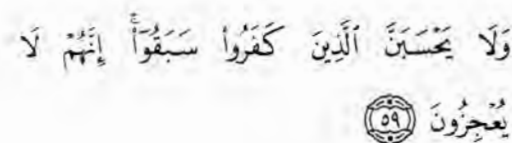 وَلَا يَحْسَبَنَّ ٱلَّذِينَ كَفَرُوا۟ سَبَقُوٓا۟ ۚ إِنَّهُمْ لَا
يُعْجِزُونَ ٥٩